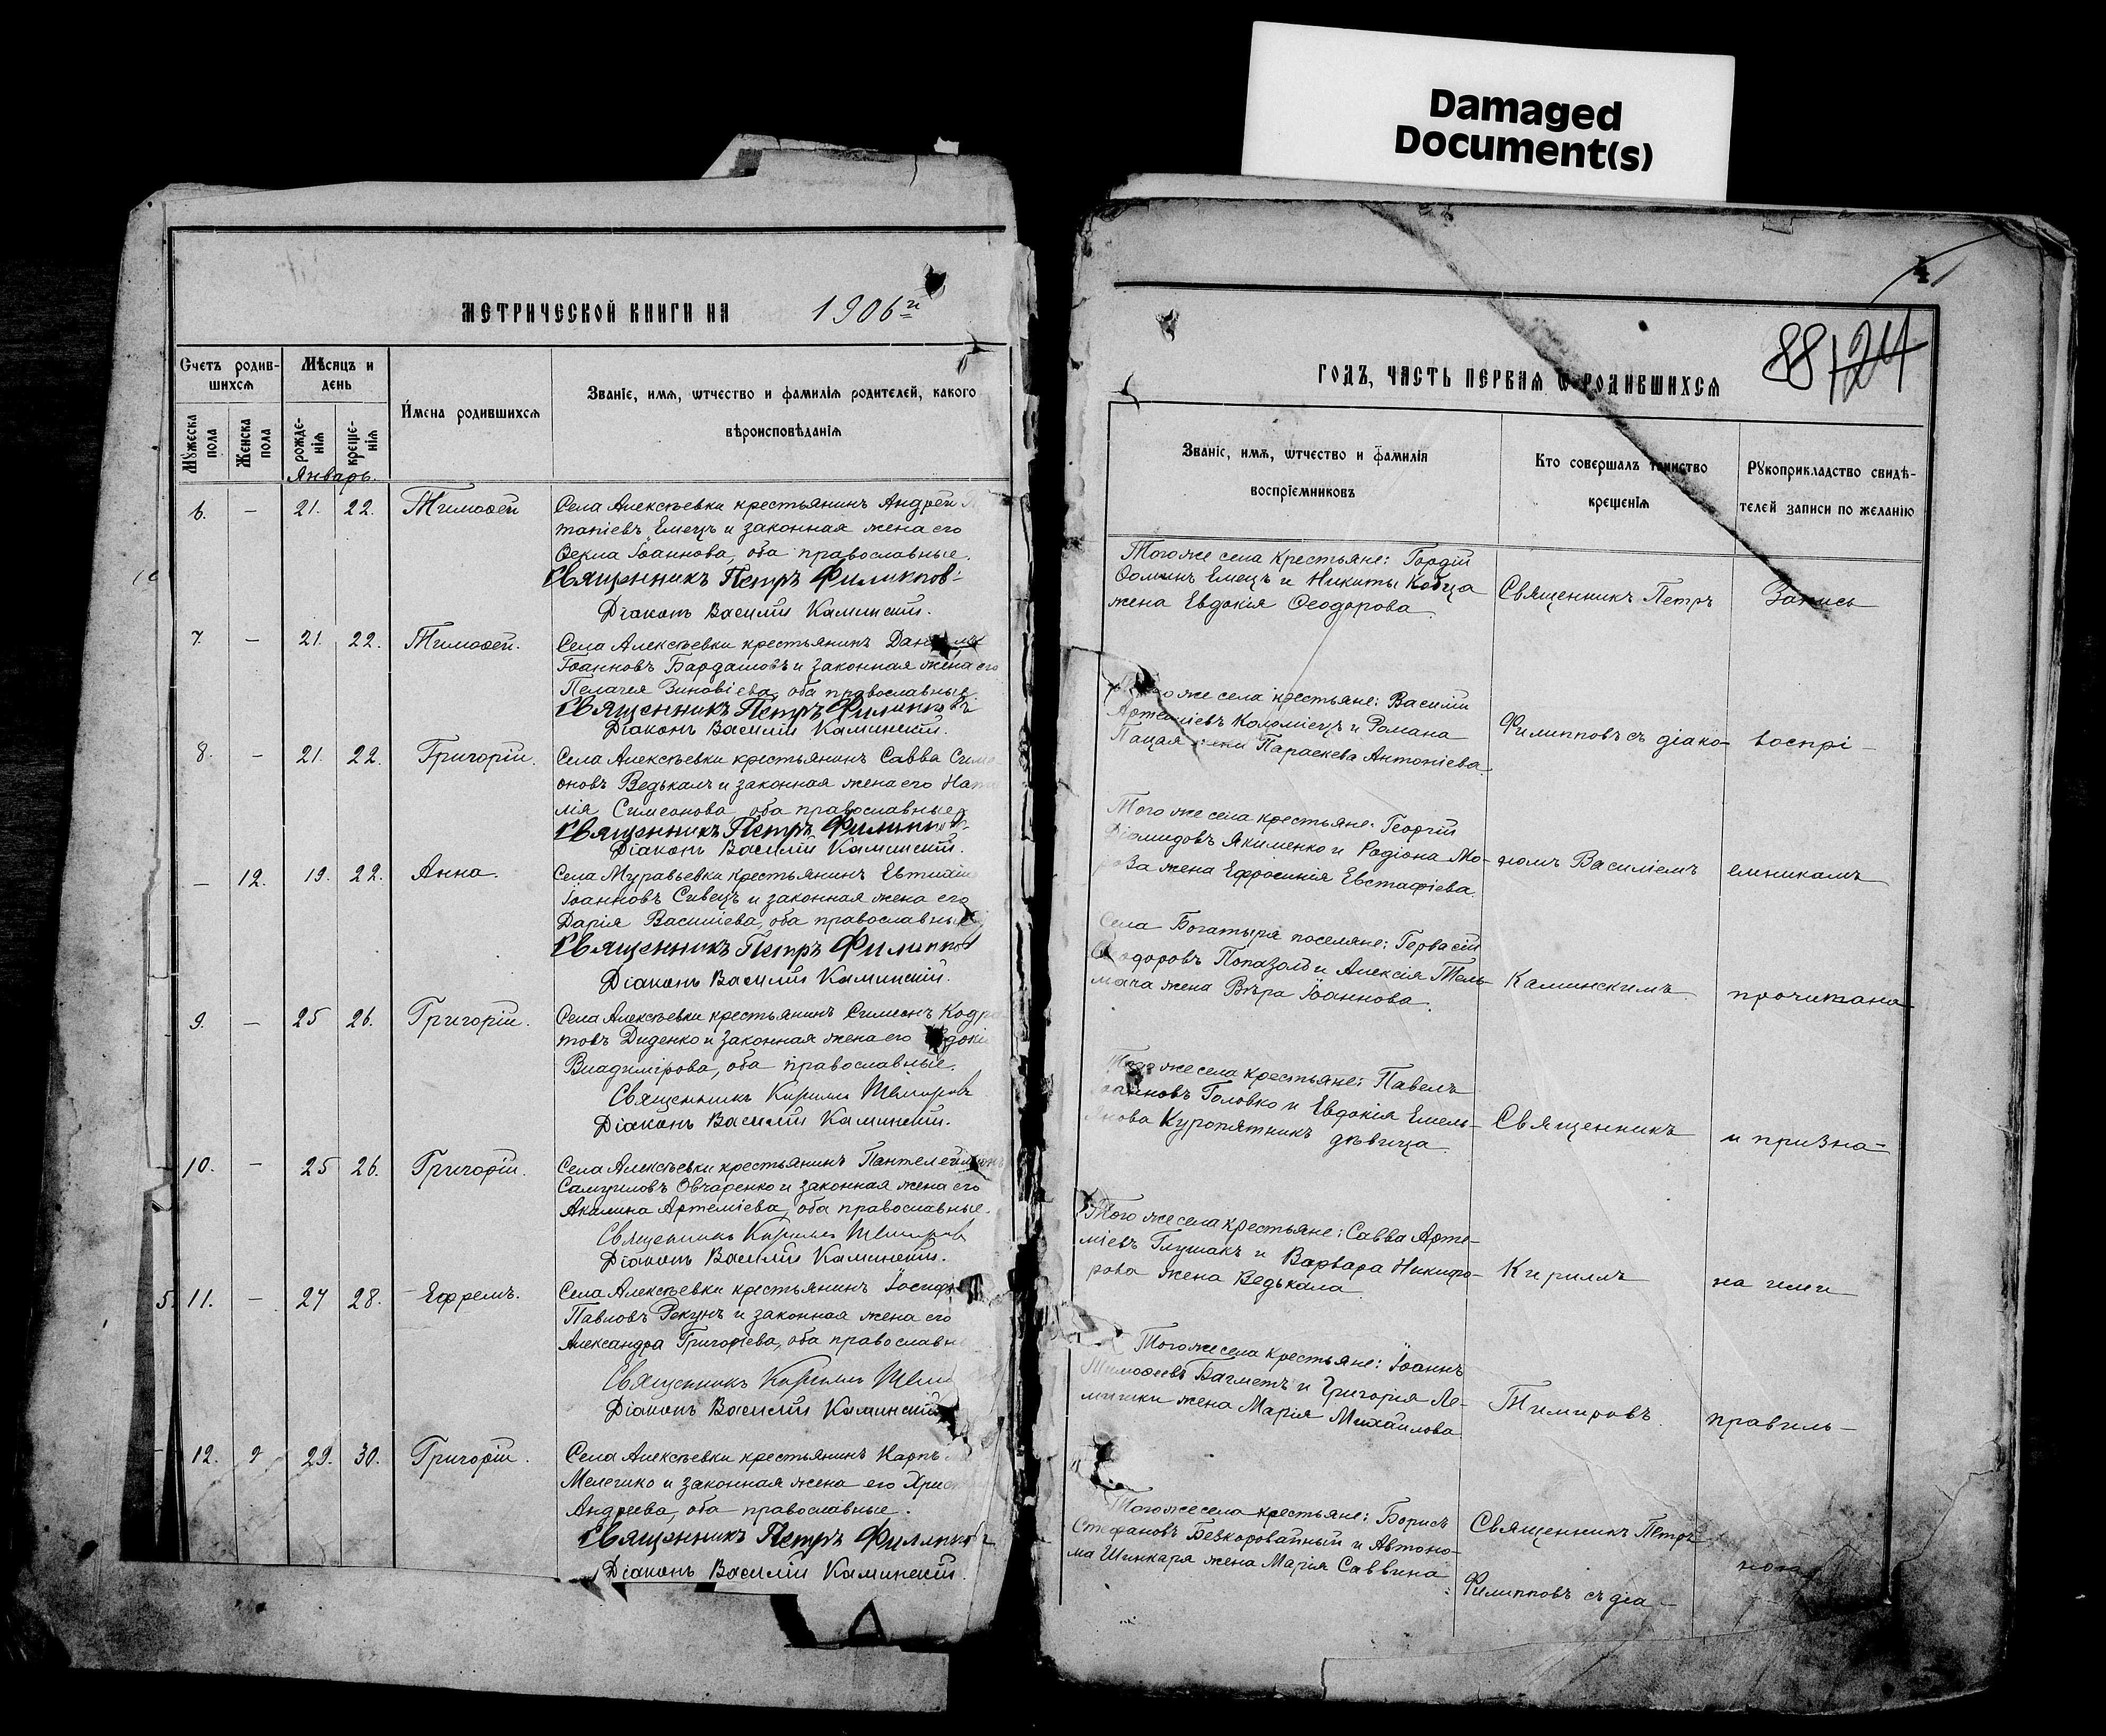 Damaged
Document(s)
МЕТРИЧЕСКОЙ КНИГИ НА 1906 й
Счетъ родив-
шихсѧ
Мѣсяцъ и
день
Мужеска
пола
Женска
пола
рожде-
нія
креще-
нія
Имена родившихсѧ
Званіе, имѧ, ѡтчество и фамиліѧ родителей, какого
вѣроисповѣданіѧ
Январь.
6. - 21. 22. Тимоѳей
Села Алексѣевки крестьянинъ Андрей
тапіевъ Емецъ и законная жена его
Ѳекла Іоаннова, оба православные.
Священникъ Петръ Филиппов
Діаконъ Василій Каминскій.
7. - 21. 22. Тимоѳей.
Села Алексѣевки крестьянинъ
Іоанновъ Бардашовъ и законная жена его
Пелагея Зиновіева, оба православные.
Священникъ Петръ Филипповъ
Діаконъ Василій Каминскій.
8. - 21. 22. Григорій.
Села Алексѣевки крестьянинъ Савва Симе
оновъ Ведькалъ и законная жена его Ната
лія Симеонова оба православные
Священникъ Петръ Филиппов
Діаконъ Василій Каминскій.
- 12. 19. 22. Анна.
Села Муравьевки крестьянинъ Евтихій
Іоанновъ Сивецъ и законная жена его
Дарія Василіева, оба православные
Священникъ Петръ Филиппов
Діаконъ Василій Каминскій.
9. - 25 26. Григорій.
Села Алексѣевки крестьянинъ Симеонъ Кодра
товъ Диденко и законная жена его
Владимірова, оба православные.
Священникъ Кириллъ Тимировъ
Діаконъ Василій Каминскій.
10. - 25 26. Григорій.
Села Алексѣевки крестьянинъ Пантелеймонъ
Самуиловъ Овчаренко и законная жена его
Акилина Артеміева, оба православные.
Священникъ Кириллъ Тимиров
Діаконъ Василій Каминскій.
5. 11. - 27 28. Ефремъ.
Села Алексѣевки крестьянинъ Іосифъ
Павловъ Рекунъ и законная жена его
Александра Григоріева, оба православн
Священникъ Кириллъ Тими
Діаконъ Василій Каминскій
12. 29. 30. Григорій.
Села Алексѣевки крестьянинъ Карпъ
и законная жена его Христ
Андреева, оба православные.
Священникъ Петръ Филиппов
Діаконъ Василій Каминскій.
88
124
ГОДЪ, ЧАСТЬ ПЕРВАѦ Ѡ РОДИВШИХСѦ
Званіе, имѧ, ѡтчество и фамиліѧ
воспріемниковъ
Кто совершалъ таинство
крещеніѧ
Рукоприкладство свидѣ-
телей записи по желанію
Того же села крестьяне: Гордій
Ѳоминъ Емецъ и Никиты Кобца
жена Евдокія Ѳеодорова.
Священникъ Петръ
Запись
Того же села крестьяне: Василій
Артеміевъ Коломіецъ и Романа
Пацая жена Параскева Антоніева.
Филипповъ съ діако-
воспрі-
Того же села крестьяне: Георгій
Діомидовъ Якименко и Родіона Мо-
роза жена Ефросинія Евстафіева.
номъ Василіемъ
емникамъ
Села Богатыря поселяне: Гервасій
Ѳеодоровъ и Алексія Тель-
мача жена Вѣра Іоаннова.
Каминскимъ
прочитана
Того же села крестьяне: Павелъ
Іоанновъ Головко и Евдокія Емель-
янова Куропятникъ дѣвица.
Священникъ
и призна-
Того же села крестьяне: Савва Арте-
міевъ Глушакъ и Варвара Никифо-
рова жена Ведькала.
Кириллъ
на ими
Того же села крестьяне: Іоаннъ
Тимоѳеевъ Багметъ и Григорія Ле-
мишки жена Марія Михайлова
Тимировъ.
правиль-
Того же села крестьяне: Борисъ
Стефановъ Безкоровайный и Автоно-
ма Шинкаря жена Марія Саввина
Священникъ Петръ
Филипповъ съ діа-